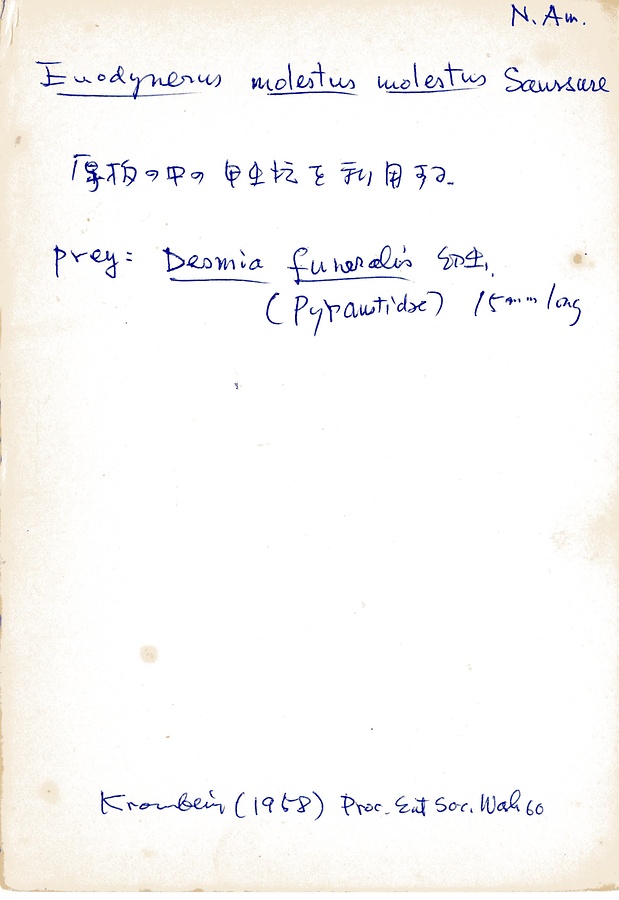 N. Am.
Euodynerus molestus molestus Saussure
厚板の中の甲虫坑を利用する.
prey: Desmia funeralis 幼虫,
(Pyraustidae) 15mm long
Krombein (1958) Proc. Ent Soc. Wash 60